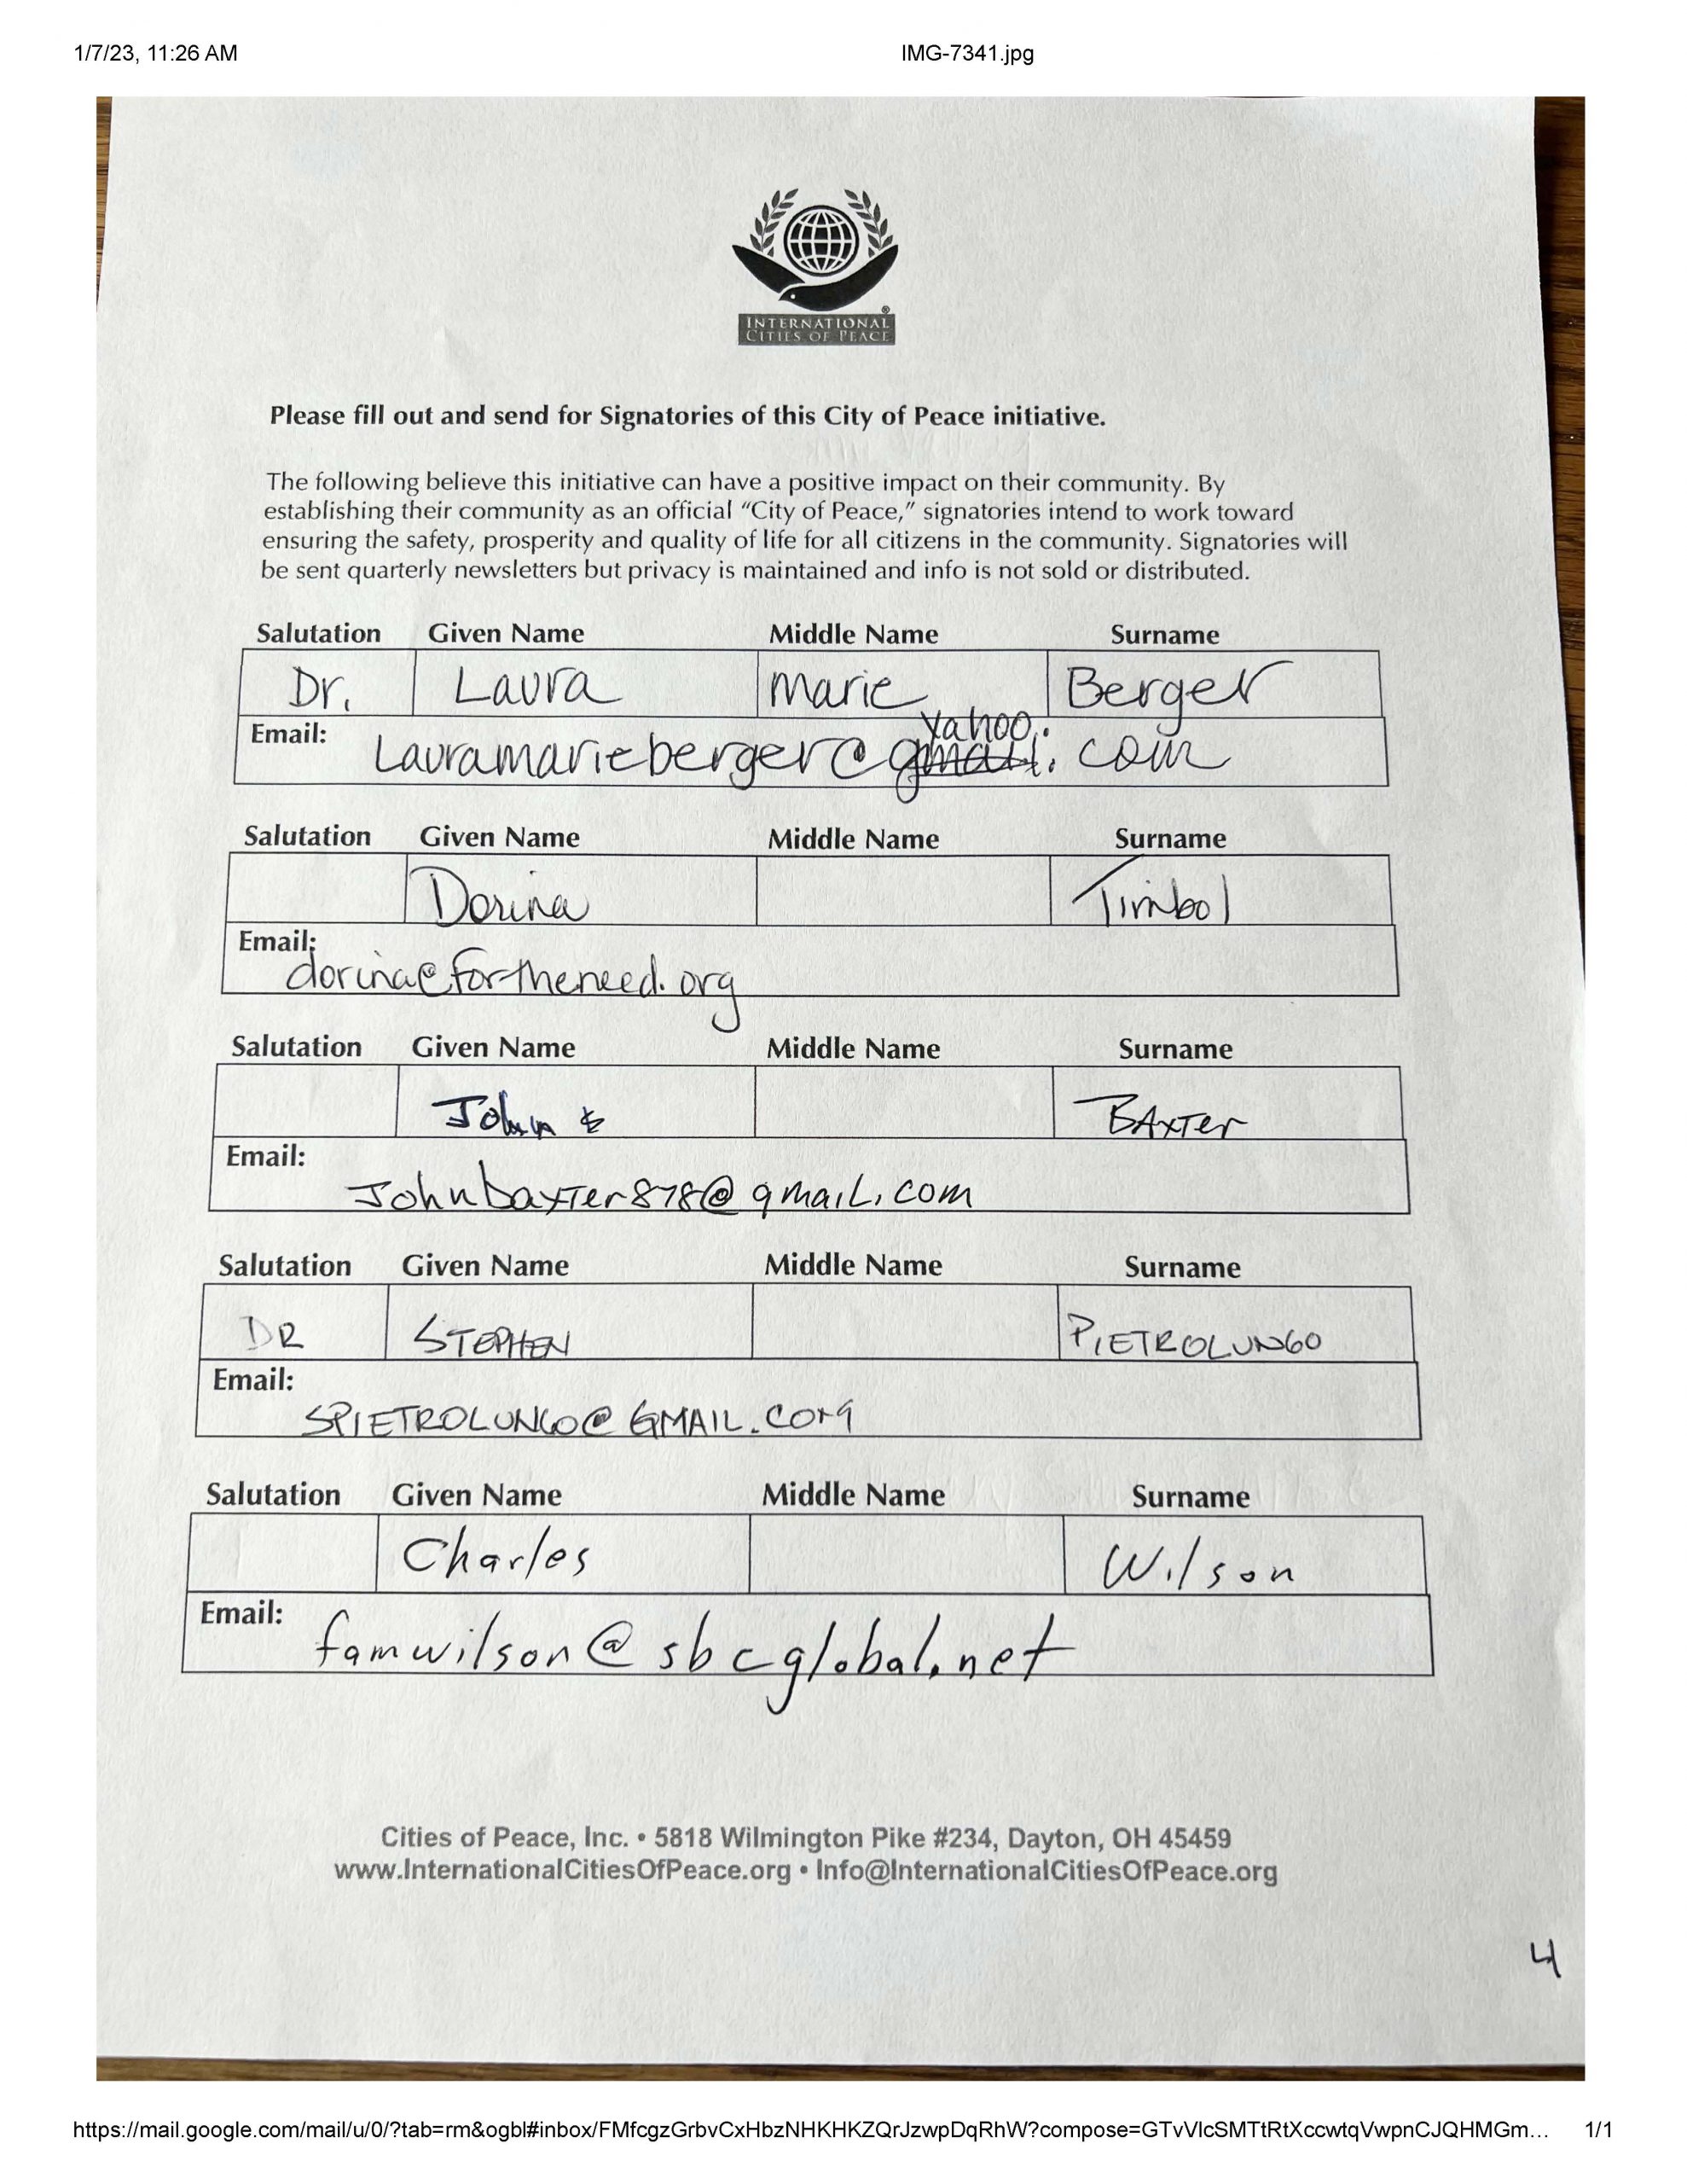 1/7/23, 11:26 AM IMG-7341.jpg
INTERNATIONAL
CITIES OF PEACE
Please fill out and send for Signatories of this City of Peace initiative.
The following believe this initiative can have a positive impact on their community. By
establishing their community as an official “City of Peace,” signatories intend to work toward
ensuring the safety, prosperity and quality of life for all citizens in the community. Signatories will
be sent quarterly newsletters but privacy is maintained and info is not sold or distributed.
Salutation Given Name Middle Name Surname
Dr. Laura Marie Berger
yahoo.
Email: Lauramarieberger@gmail.com
Salutation Given Name Middle Name Surname
Dorina Timbol
Email:
dorina@fortheneed.org
Salutation Given Name Middle Name Surname
John BAxTer
Email:
Johnbaxter878@gmail.com
Salutation Given Name Middle Name Surname
DR STEPHEN PIETROLUNGO
Email:
SPIETROLUNGO@GMAIL.COM
Salutation Given Name Middle Name Surname
Charles Wilson
Email:
famwilson@sbcglobal.net
Cities of Peace, Inc. • 5818 Wilmington Pike #234, Dayton, OH 45459
www.InternationalCitiesOfPeace.org • Info@InternationalCitiesOfPeace.org
4
https://mail.google.com/mail/u/0/?tab=rm&ogbl#inbox/FMfcgzGrbvCxHbzNHKHKZQrJzwpDqRhW?compose=GTvVlcSMTtRtXccwtqVwpnCJQHMGm… 1/1